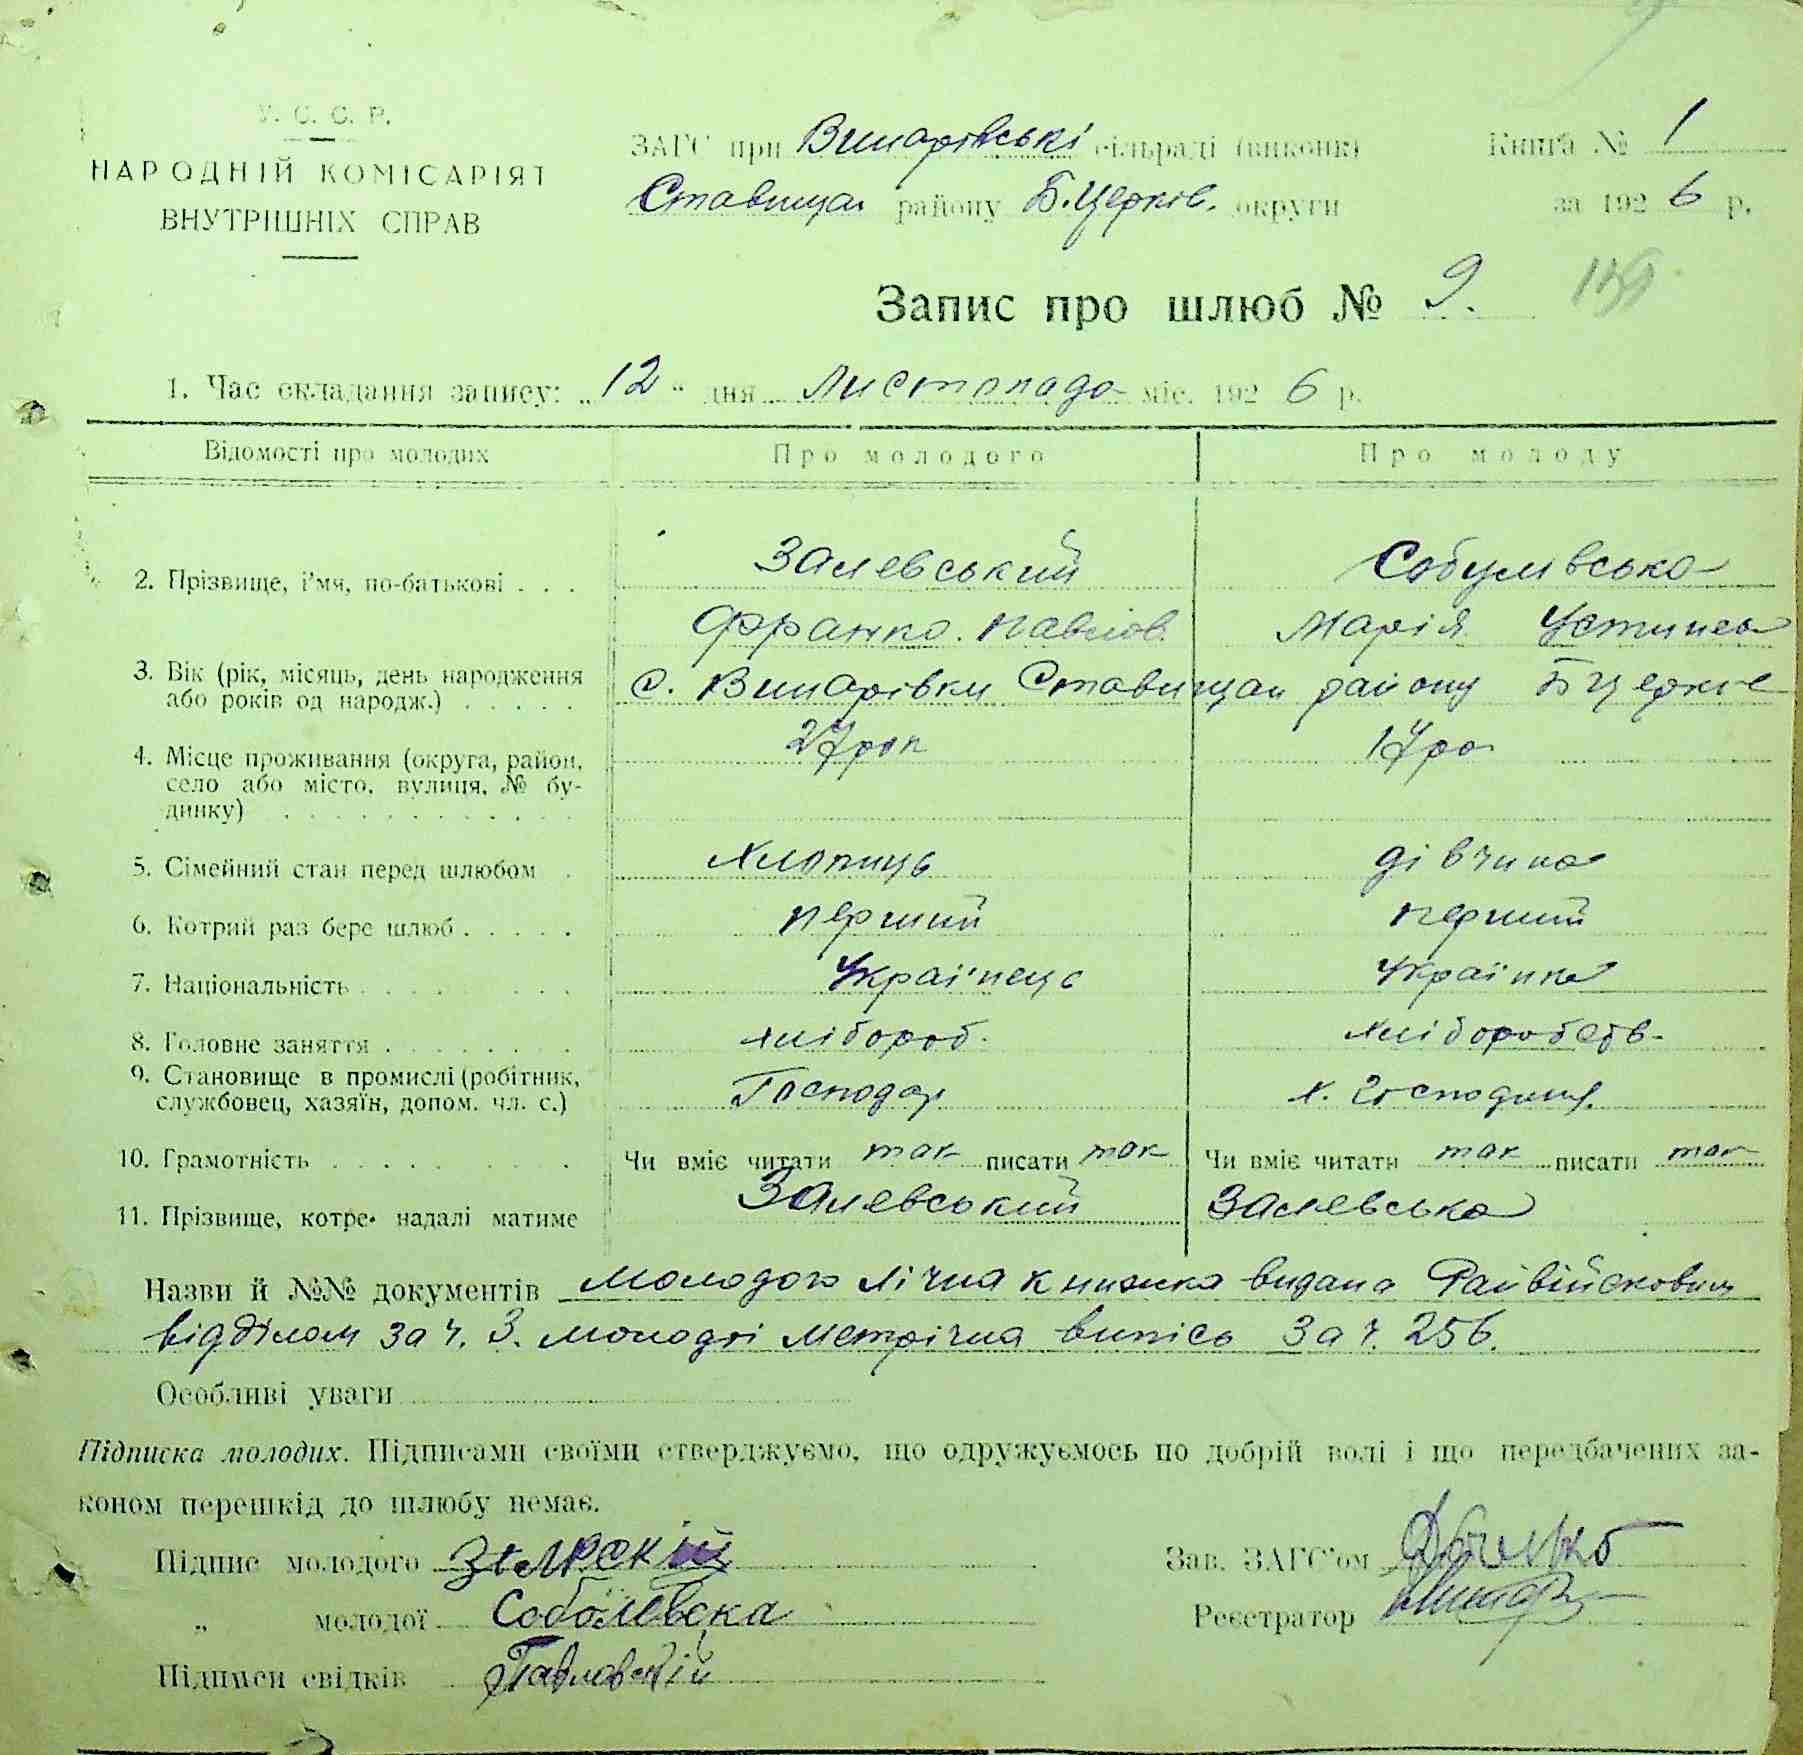 У. С. С. Р.
НАРОДНІЙ КОМІСАРІЯТ
ВНУТРІШНІХ СПРАВ
ЗАГС при Винарівські сільраді (виконк)
Ставищан району Б.Церків. округи
Книга № 1
за 1926 р.
Запис про шлюб № 9.
159
1. Час складання запису: „12“ дня Листопада міс. 1926 р.
Відомості про молодих Про молодого Про молоду
2. Прізвище, і'мя, по-батькові . . . Залевський Собулівська
Франко. Павлов. Марія Устинов
3. Вік (рік, місяць, день народження
або років од народж.) . . . . . с. Винарівки Ставищан району БЦерків
4. Місце проживання (округа, район, 27 рок 17 ро
село або місто, вулиця, № бу-
динку) . . . . . . . . . . . .
5. Сімейний стан перед шлюбом . Хлопиць дівчина
6. Котрий раз бере шлюб . . . . . перший перший
7. Національність . . . . . . . . Українець Українка
8. Головне заняття . . . . . . . . хлібороб. хліборобств.
9. Становище в промислі (робітник,
службовец, хазяїн, допом. чл. с.) Господар х. господиня.
10. Грамотність . . . . . . . . . Чи вміє читати так писати так Чи вміє читати так писати так
11. Прізвище, котре надалі матиме Залевський Залевська
Назви й №№ документів Молодого лічна книжка видана Райвійсковим
відділом за ч. 3. молодої метрічна випісь за ч. 256.
Особливі уваги
Підписка молодих. Підписами своїми стверджуємо, що одружуємось по добрій волі і що передбачених за-
коном перешкід до шлюбу немає.
Підпис молодого
Зав. ЗАГС'ом
„ молодої Соболевска
Реєстратор
Підписи свідків Павловскій